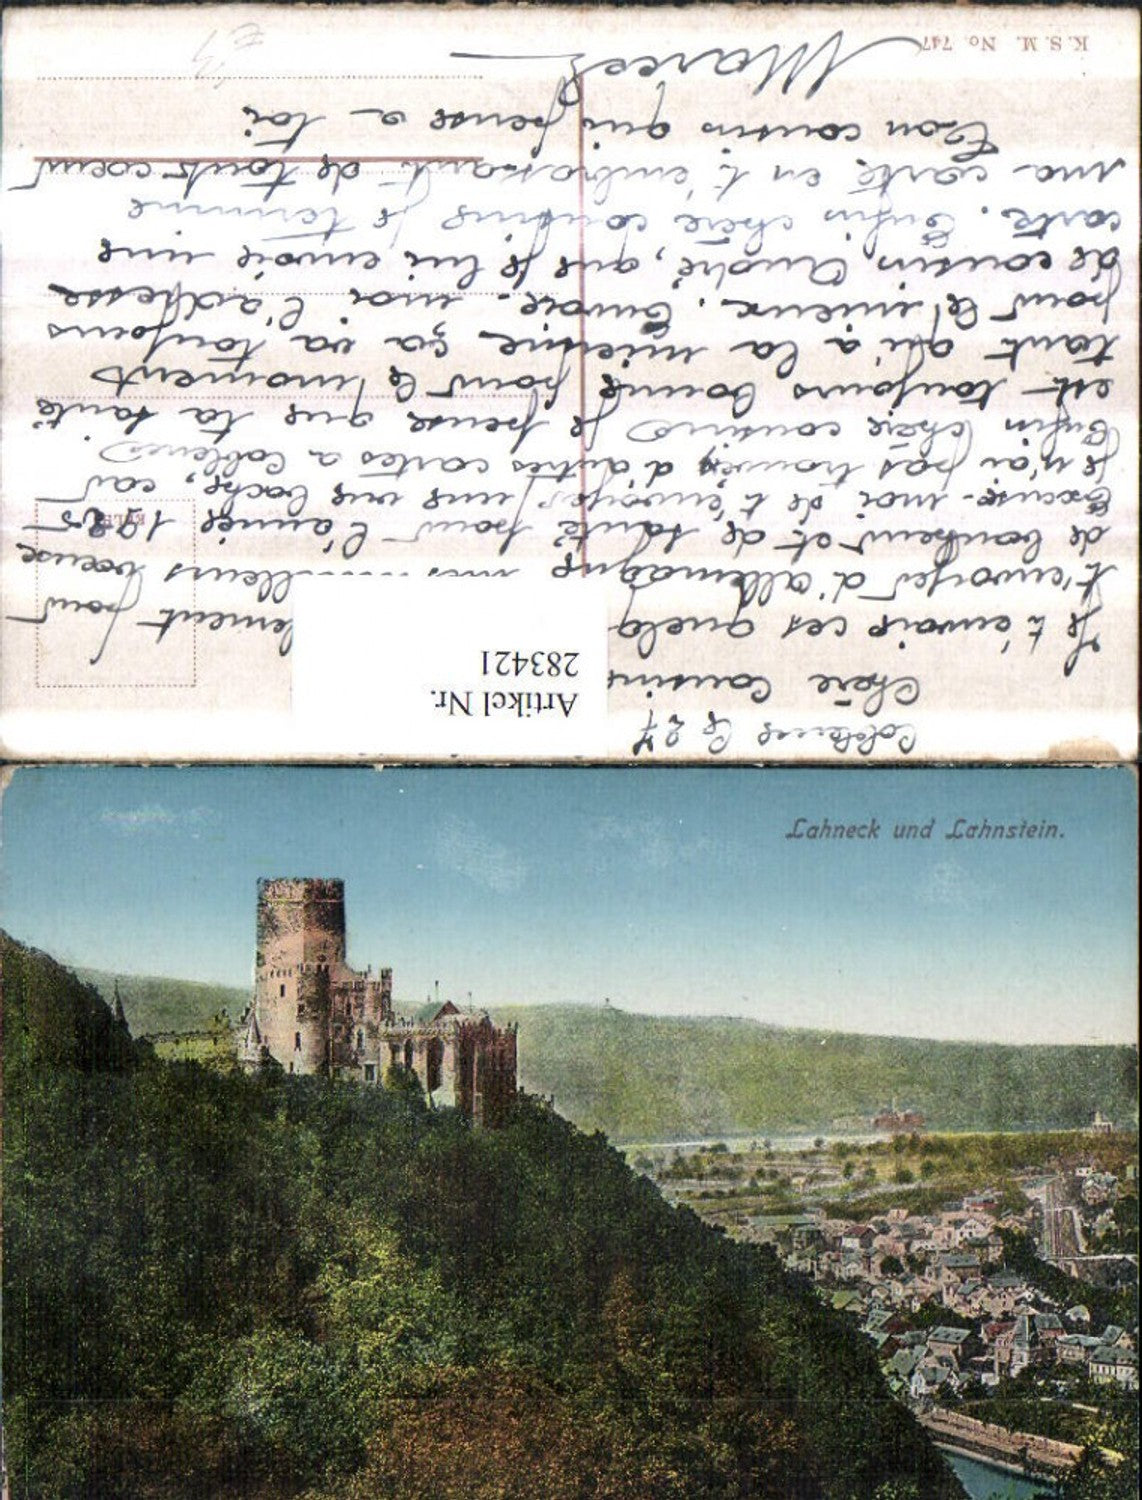 K.S.M. No. 747
Coblence le 27
Chère Cousine
Je t'envoie ces quelq
lement pour
t'envoyer d'allemagne mes
lleurs voeux
de bonheur et de santé pour l'année 1925
Excuse-moi de t'envoyer une vue boche, car
je n'ai pas trouvé d'autres cartes a Coblence
Enfin Chère cousine je pense que ta santé
est toujours bonne pour le moment
tant qu'a la mienne ça va toujours
pour le mieux. Envoie-moi l'adresse
de cousin André, que je lui envoie une
carte. Enfin chère cousine je termine
ma carte en t'embrassant de tout coeur
Ton cousin qui pense a toi
Marcel
Artikel Nr.
283421
Lahneck und Lahnstein.